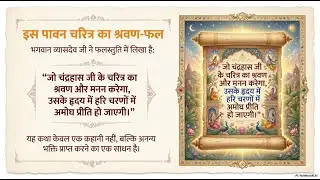 इस पावन चरित्र का श्रवण-फल
भगवान व्यासदेव जी ने फलस्तुति में लिखा है:
“जो चंद्रहास जी के चरित्र का
श्रवण और मनन करेगा,
उसके हृदय में हरि चरणों में
अमोघ प्रीति हो जाएगी।”
यह कथा केवल एक कहानी नहीं, बल्कि अनन्य
भक्ति प्राप्त करने का एक साधन है।
जो चंद्रहास जी
के चरित्र का श्रवण
और मनन करेगा,
उसके हृदय में हरि
चरणों में अमोघ
प्रीति हो जाएगी।”